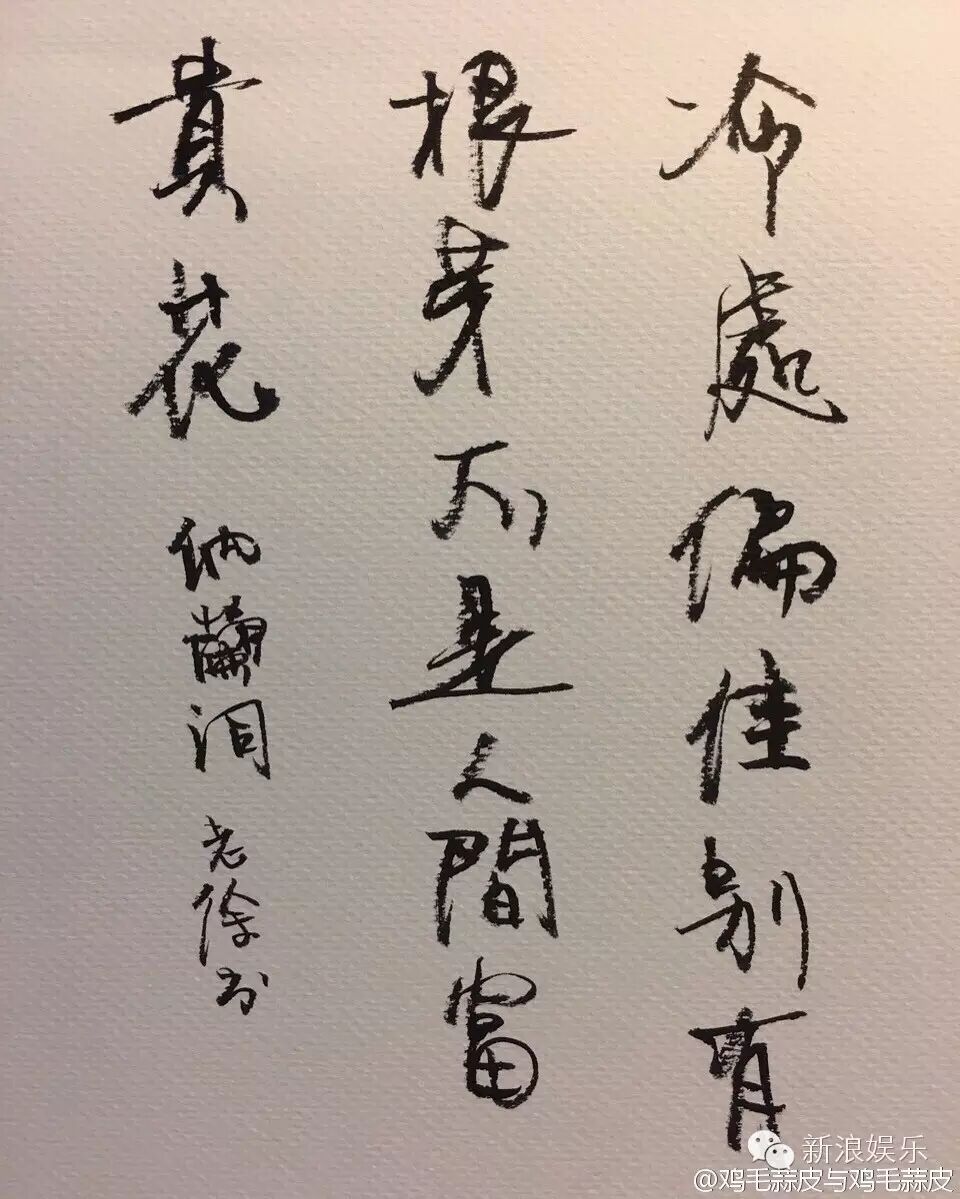 冷處偏佳别有
根芽不是人間富
貴花 納蘭詞 老徐书
新浪娱乐
@鸡毛蒜皮与鸡毛蒜皮